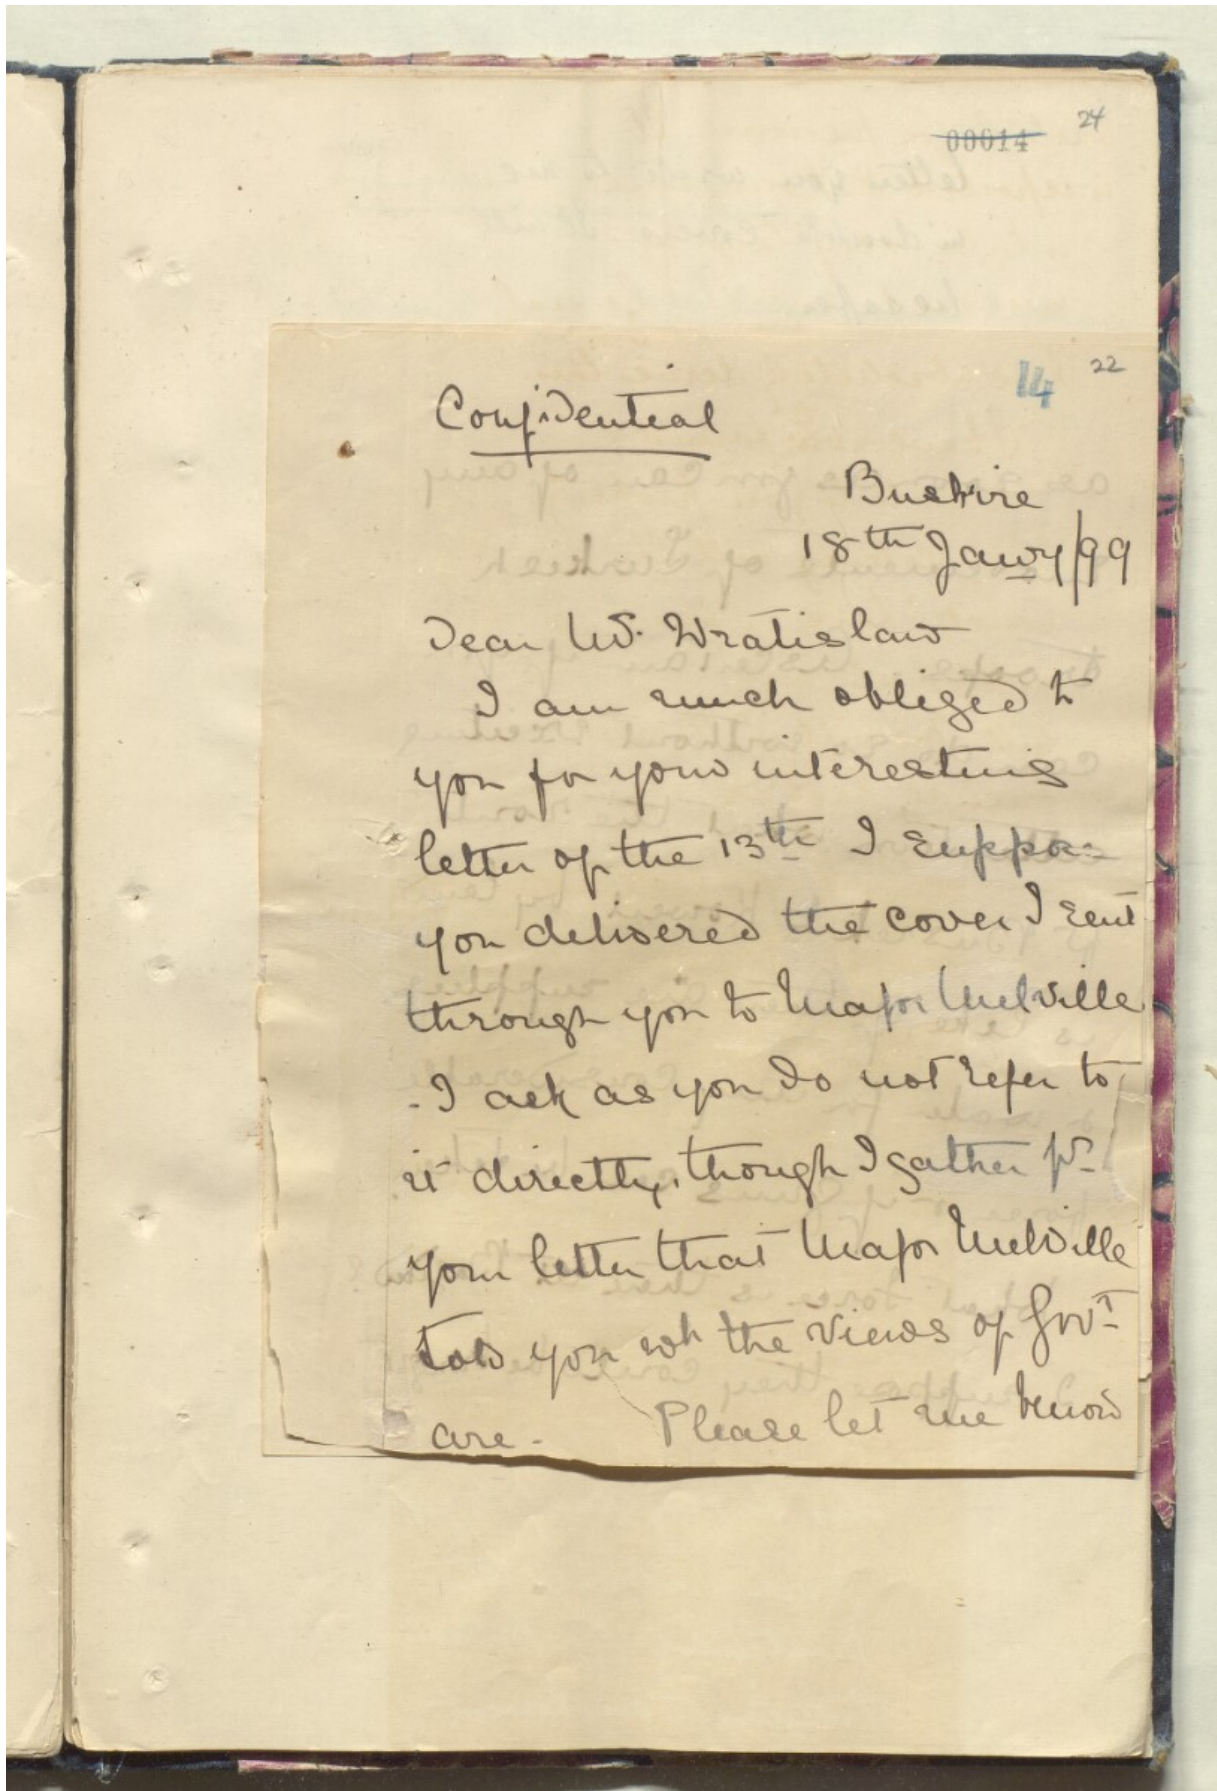 24
00014
14
22
Confidential
Bushire
18th Jany/99
Dear Mr. Wratislaw
I am much obliged to
you for your interesting
letter of the 13th I suppose
you delivered the cover I sent
through you to Major Melville
- I ask as you do not refer to
it directly, though I gather fr
your letter that Major Melville
told you wh the views of Govt
are - Please let me know